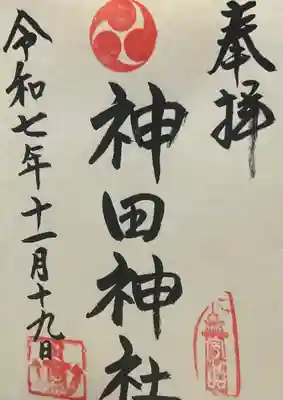 奉拝
神田神社
令和七年十一月十九日